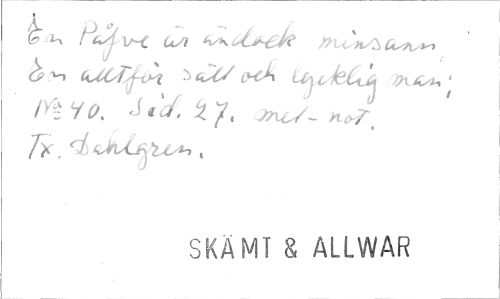 En Påfve är ändock minsann,
En alltför säll och lycklig man;
No 40. Sid. 27. mel-not.
Tx. Dahlgren.
SKÄMT & ALLWAR